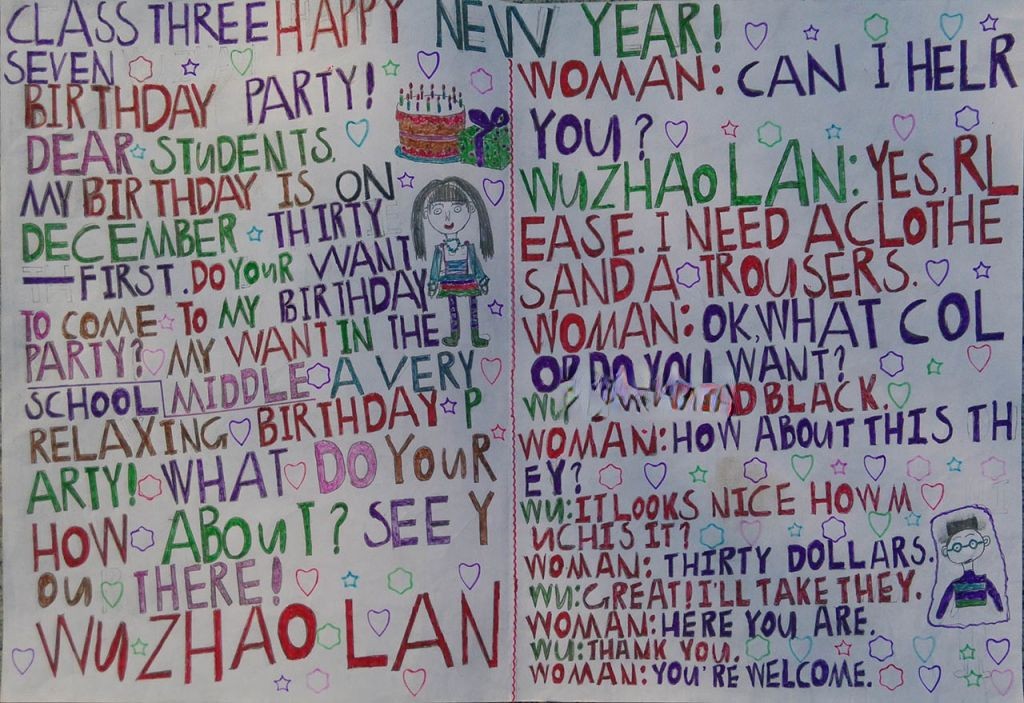 CLASS THREE HAPPY NEW YEAR!
SEVEN
BIRTHDAY PARTY!
DEAR STUDENTS.
MY BIRTHDAY IS ON
DECEMBER THIRTY
—FIRST. DO YOUR WANT
TO COME TO MY BIRTHDAY
PARTY? MY WANT IN THE
SCHOOL MIDDLE A VERY
RELAXING BIRTHDAY P
ARTY! WHAT DO YOUR
HOW ABOUT? SEE Y
OU THERE!
WUZHAO LAN
WOMAN: CAN I HELR
YOU?
WUZHAO LAN: YES, RL
EASE. I NEED A CLOTHE
SAND A TROUSERS.
WOMAN: OK, WHAT COL
OR DO YOU WANT?
WU D BLACK.
WOMAN: HOW ABOUT THIS TH
EY?
WU: IT LOOKS NICE HOW M
UCH IS IT?
WOMAN: THIRTY DOLLARS.
WU: GREAT! I'LL TAKE THEY.
WOMAN: HERE YOU ARE.
WU: THANK YOU.
WOMAN: YOU'RE WELCOME.